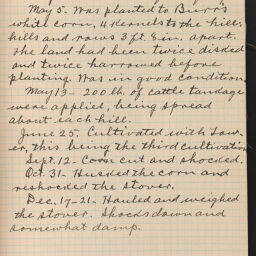 May 5. Was planted to Burr's
white corn, 4 kernels to the hill;
hills and rows 3 ft. 8 in. apart.
The land had been twice disked
and twice harrowed before
planting. Was in good condition.
May 13- 200 lb. of cattle tandage
were applied, being spread
about each hill.
June 25. Cultivated with Saw-
er, this being the third cultivation
Sept. 12- Corn cut and shocked.
Oct. 31- Husked the corn and
reshocked the stover.
Dec. 17-21- Hauled and weighed
the stover. Shocks down and
somewhat damp.